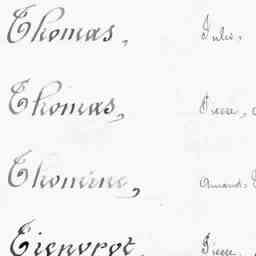 Thomas, Jules,
Thomas, Pierre,
Thomine, Amand-
Tienvrot, Pierre